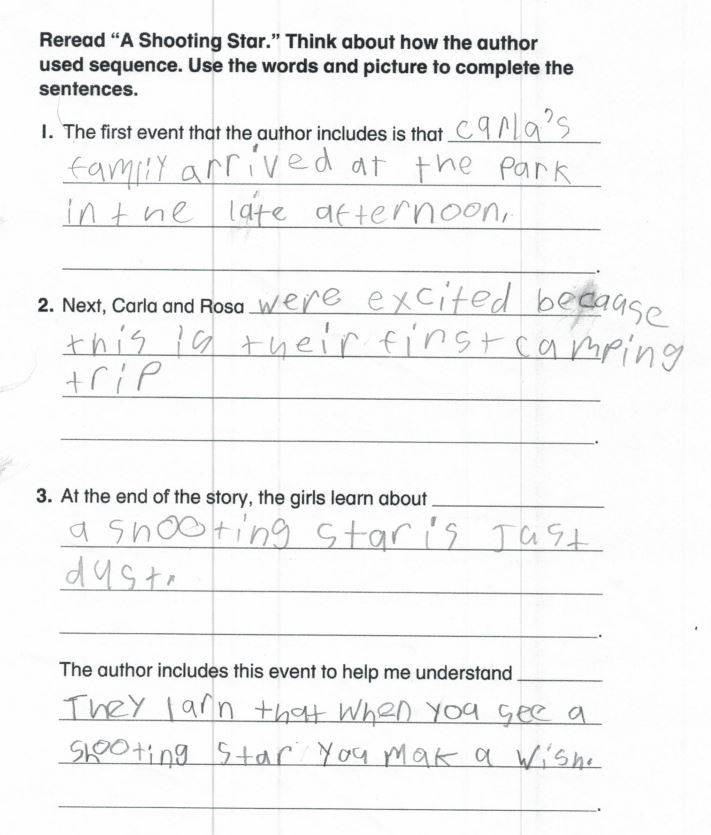 Reread “A Shooting Star.” Think about how the author
used sequence. Use the words and picture to complete the
sentences.
1. The first event that the author includes is that carla's
family arrived at the park
in the late afternoon.
.
2. Next, Carla and Rosa were excited because
this is their first camping
trip
.
3. At the end of the story, the girls learn about
a shooting star is Just
dust.
.
The author includes this event to help me understand
They larn that when you see a
shooting star you mak a wish.
.